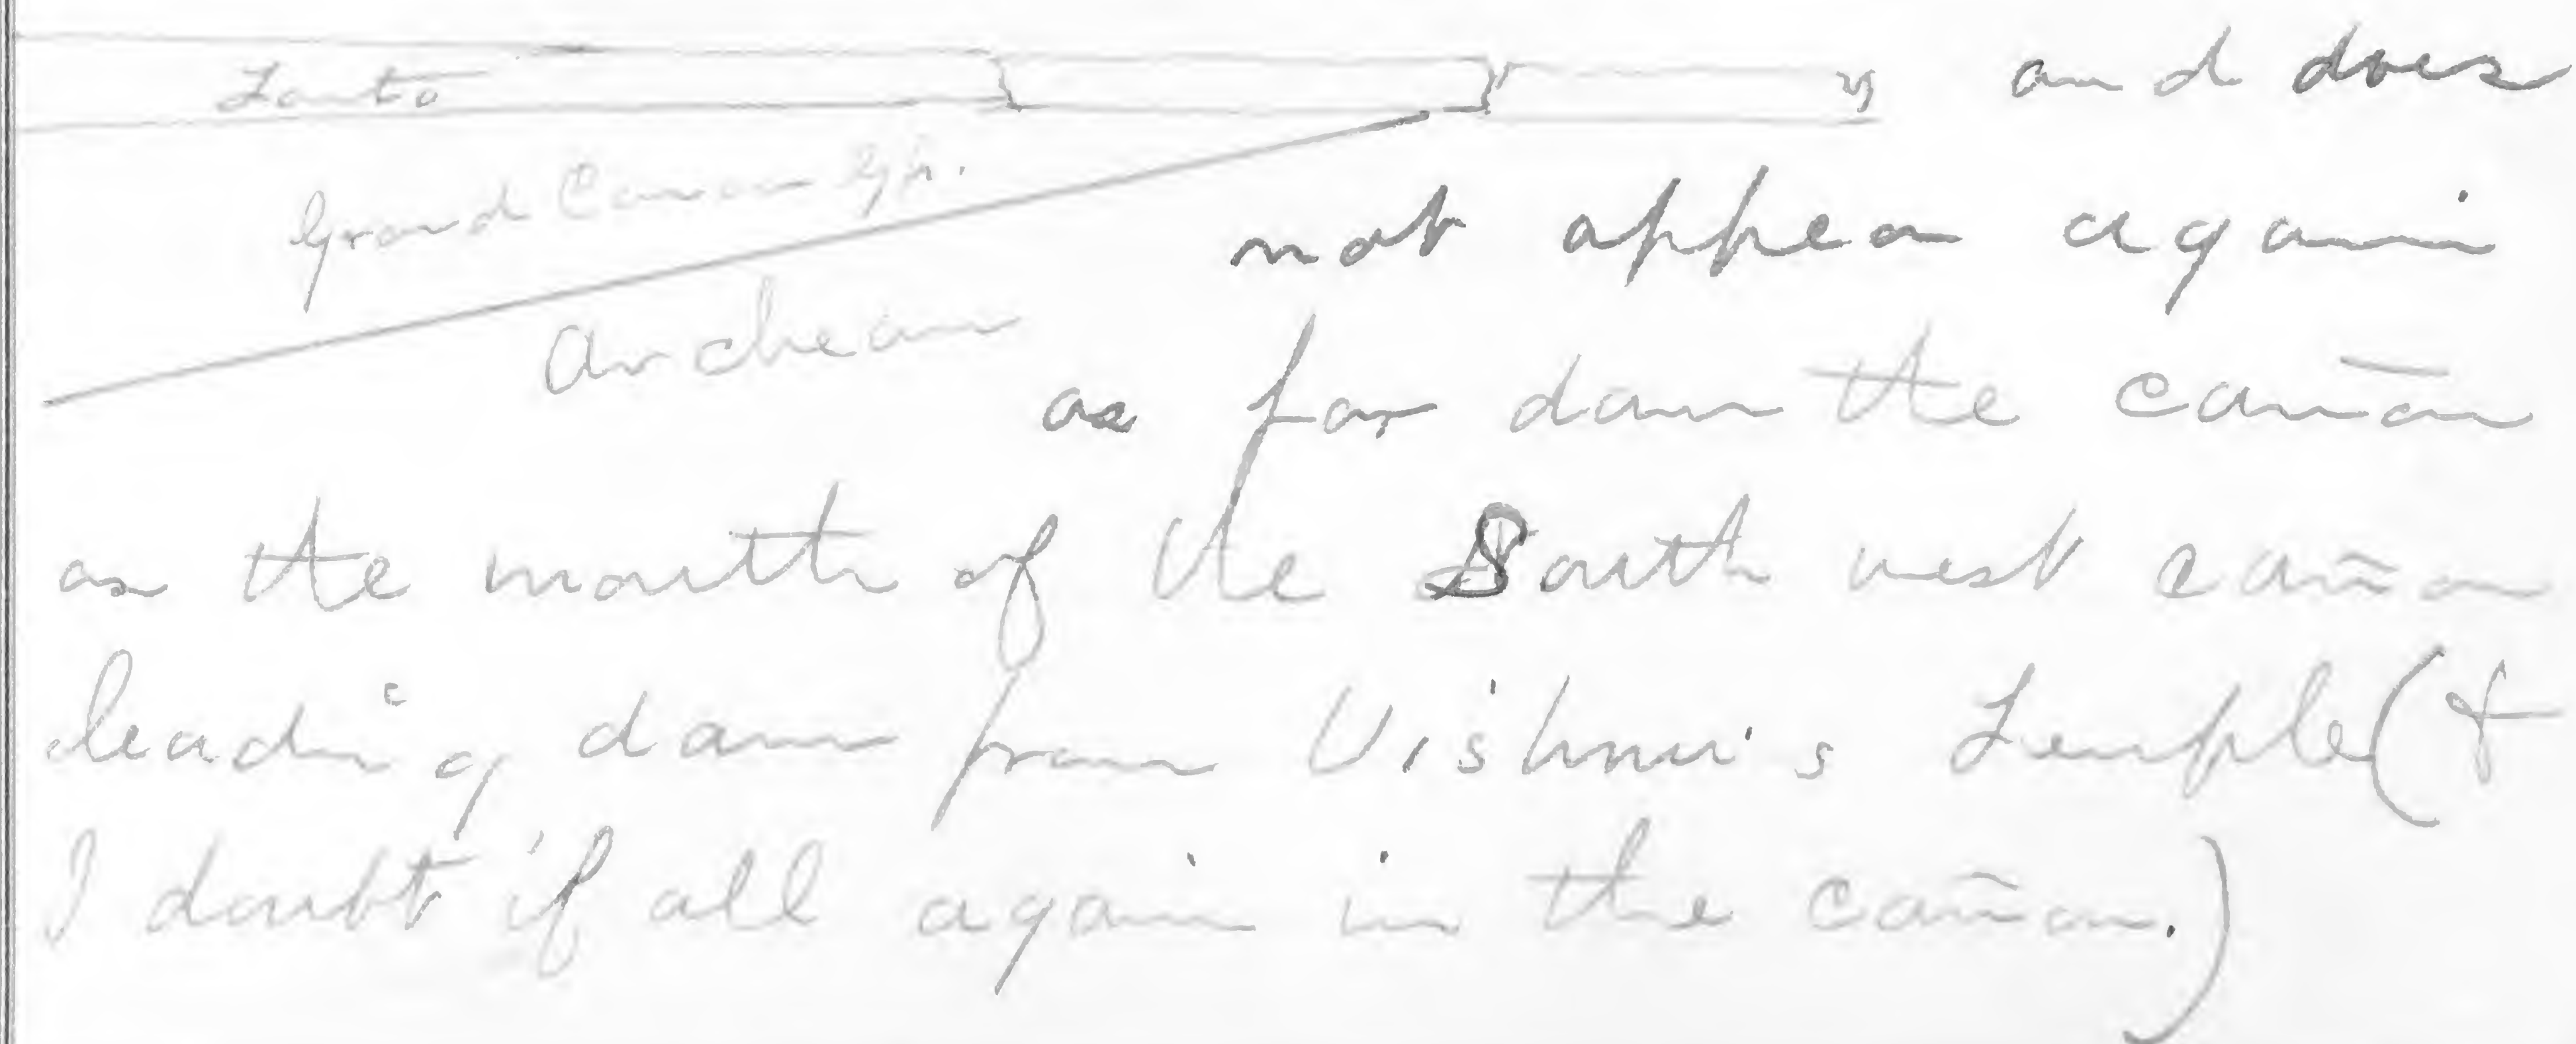 Tonto
and does
Grand Cañon Gp.
not appear again
Archean
as far down the cañon
as the mouth of the South west cañon
leading down from Vishnu's Temple (&
I doubt if all again in the cañon.)